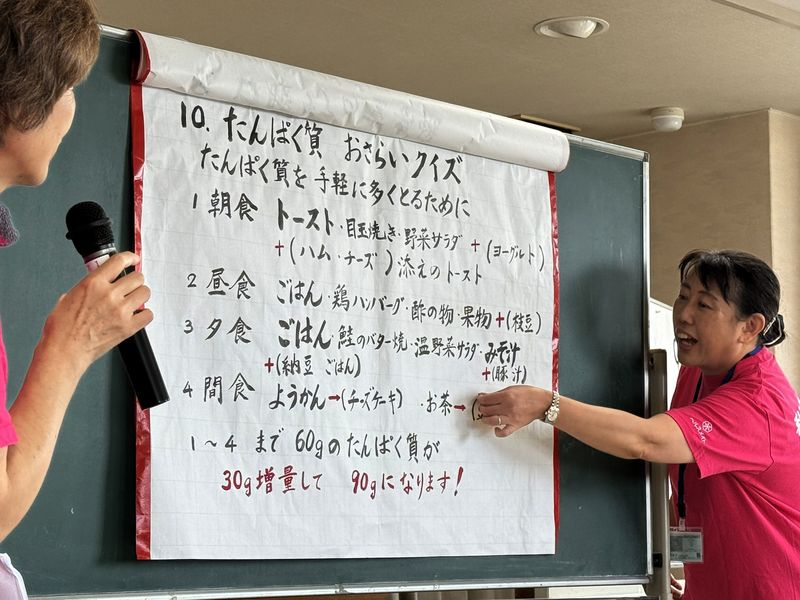 10. たんぱく質 おさらいクイズ
たんぱく質を 手軽に多くとるために
1 朝食 トースト・目玉焼き・野菜サラダ + (ヨーグルト)
+(ハム・チーズ) 添えのトースト
2 昼食 ごはん・鶏ハンバーグ・酢の物・果物+(枝豆)
3 夕食 ごはん・鮭のバター焼・温野菜サラダ・みそ汁
+(納豆 ごはん) +(豚汁)
4 間食 ようかん→(チーズケーキ) ・お茶→(
1～4 まで 60gのたんぱく質が
30g増量して 90gになります!